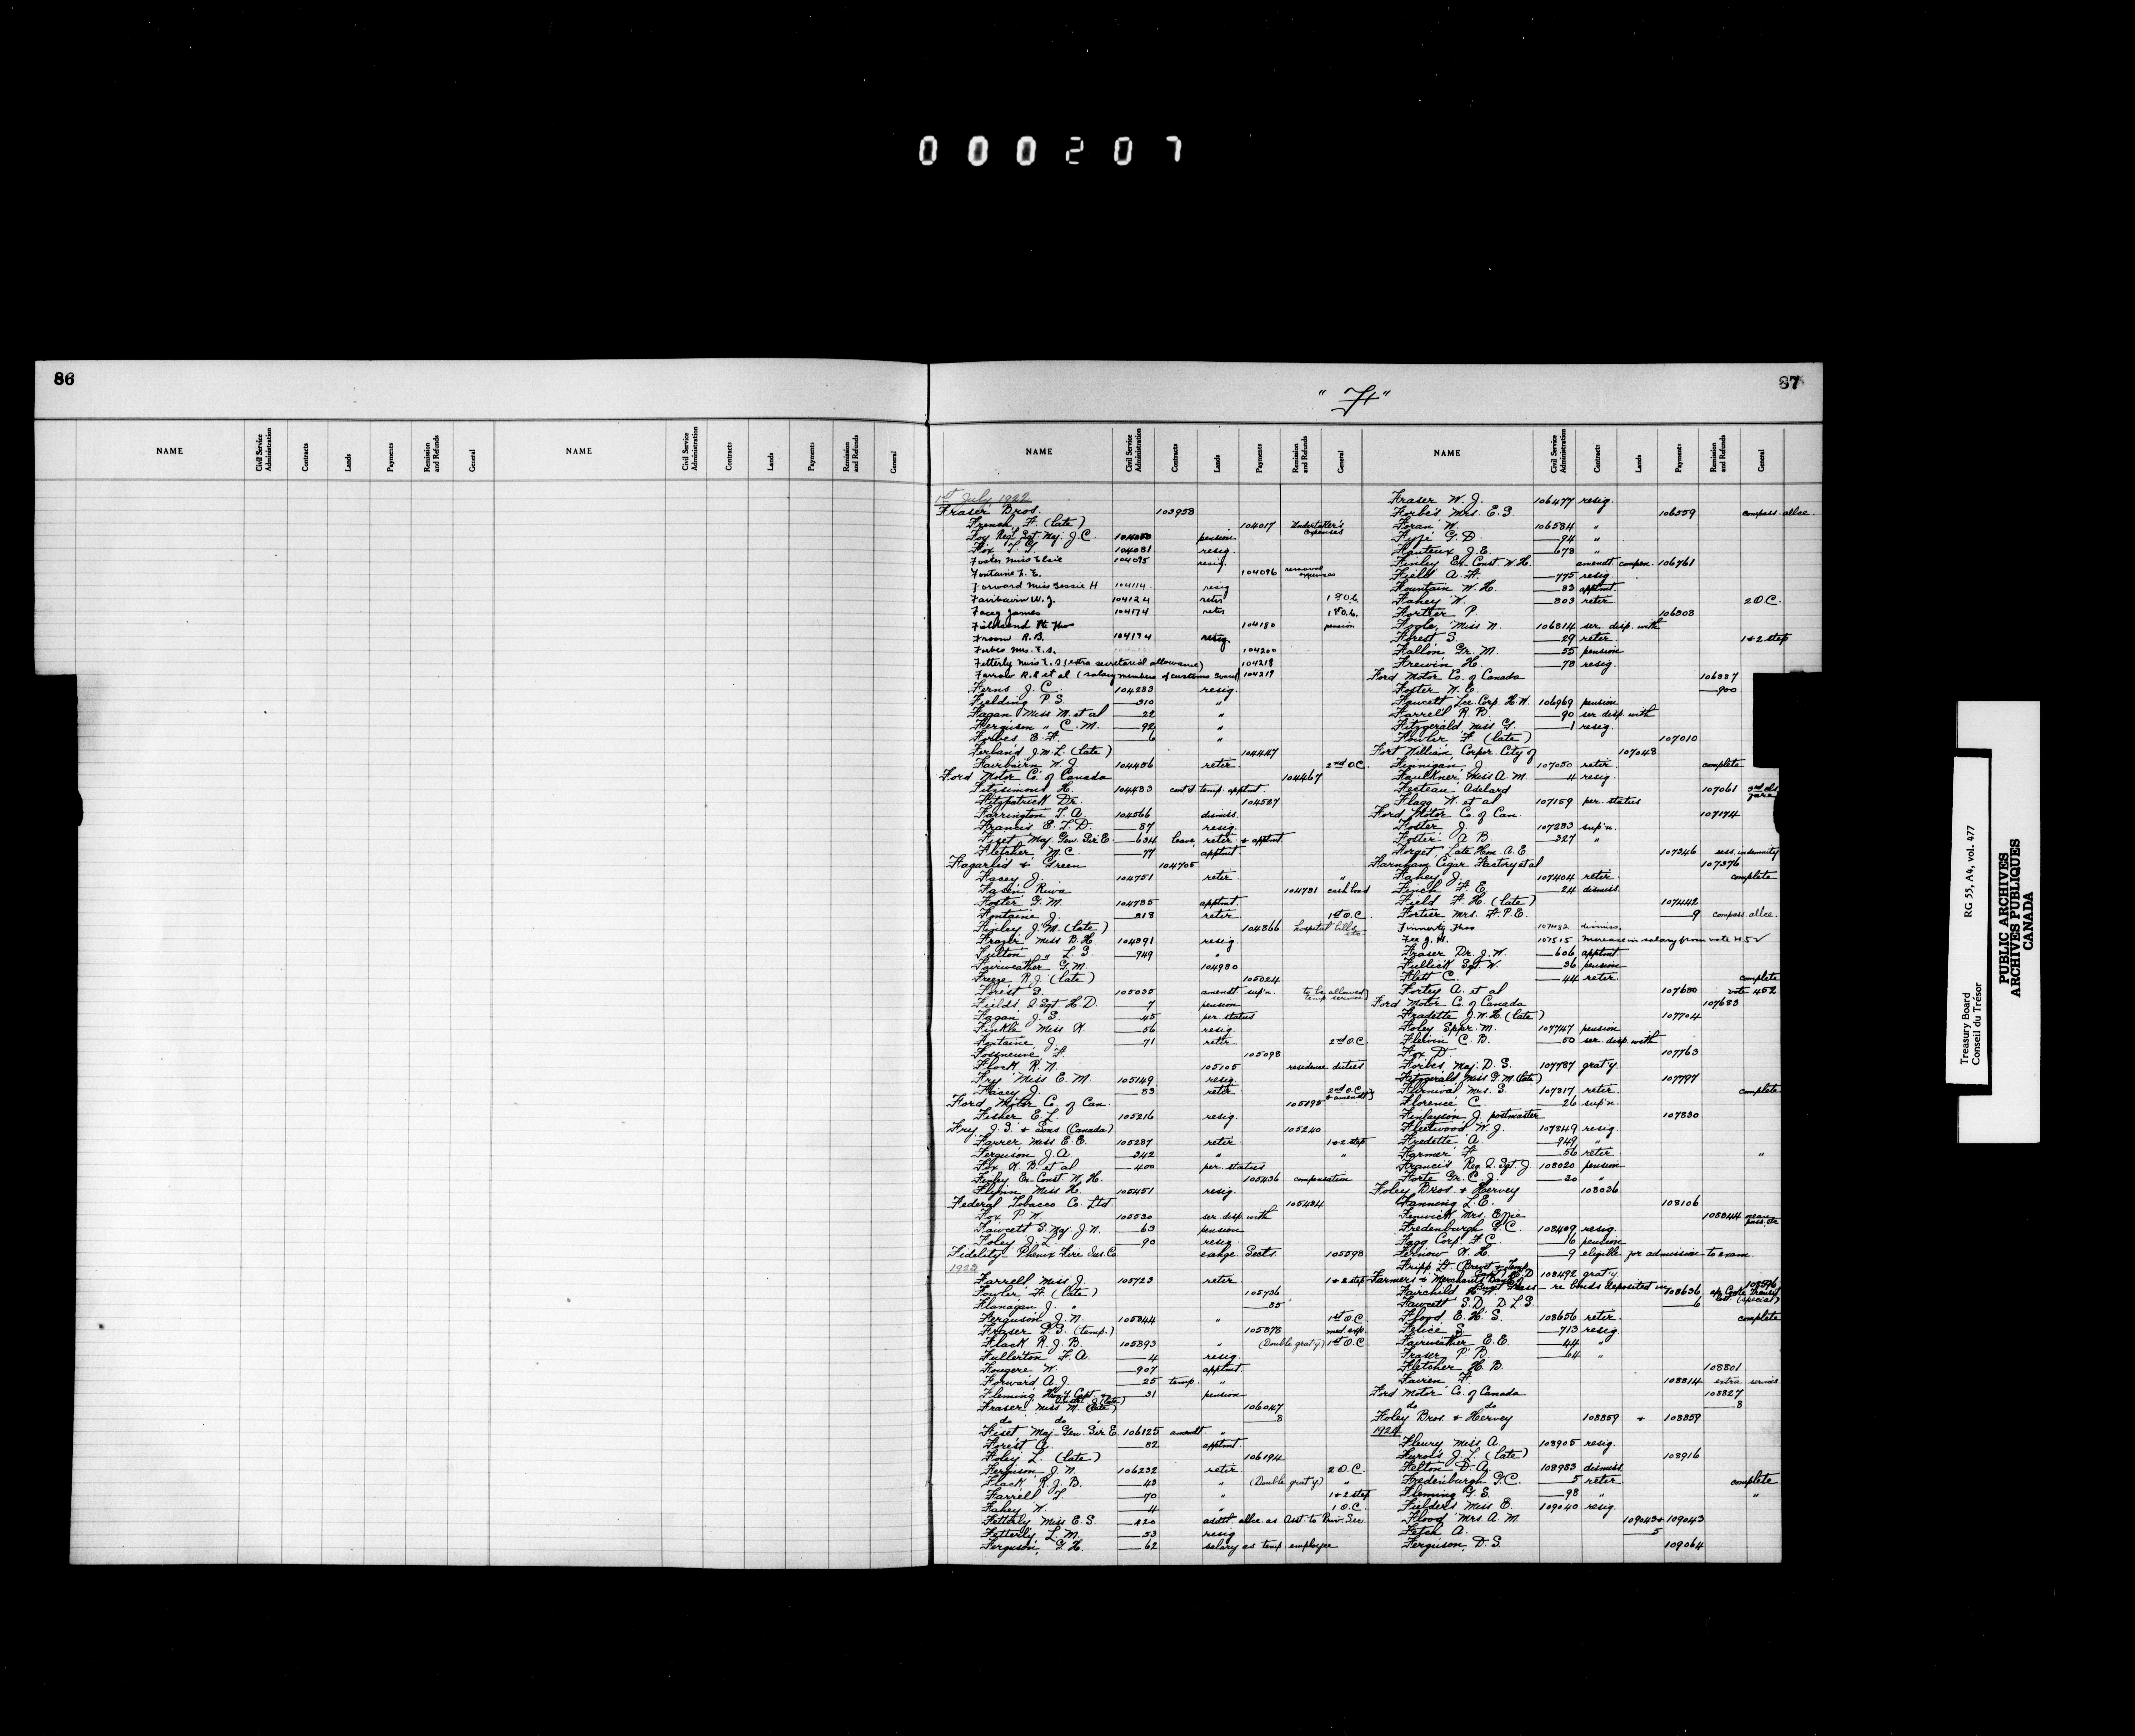 000207
86
NAME Civil Service Administration Contracts Lands Payments Remission and Refunds General NAME Civil Service Administration Contracts Lands Payments Remission and Refunds General
"F"
87
NAME Civil Service Administration Contracts Lands Payments Remission and Refunds General NAME Civil Service Administration Contracts Lands Payments Remission and Refunds General
1st July 1922
Fraser Bros. 103958
French, F. (late) 104017 Undertaker's expenses
Foy Regl Sgt. Maj. J.C. 104050 pension
Fox T. 104081 resig.
Foster Miss Elsie 104095 resig.
Fontaine L. E. 104096 removal expenses
Forward Miss Jessie H 104114 resig
Fairbairn W. J. 104124 retir
Facey James 104174 retir
104180 pension
Froom R.B. 104194 resig.
Forbes Mrs. E.S. 104200
Fetterly Miss E. S (extra secretarial allowance) 104218
Farrow R.R et al (salary members of customs board) 104219
Ferns J. C. 104283 resig.
Fielding P. S. 310 "
Fagan Miss M. et al 22 "
Ferguson " C. M. 92 "
Forbes E. F. 6 "
Ferland J.M.L. (late) 104447
Fairbairn W. J. 104456 retir 2nd O.C.
Ford Motor Co. of Canada 104467
Fitzsimons H. 104483 cont'd temp. apptmt.
Fitzpatrick Dr. 104527
Farrington T. A. 104566 dismiss.
Francis E. L. D. 87 resig.
Fiset Maj. Gen. Sir E. 634 leave, retir & apptmt
Fletcher M. C. 77 apptmt
Fagarlis & Green 104705
Facey J. 104751 retir "
Riwa 104781 cash bond
Foster G. M. 104785 apptmt.
Fontaine J. 818 retir 1st O.C.
Finley J. M. (late) 104866 hospital bills etc
Frazer Miss B. H. 104891 resig
Fulton " L. G. 949 "
Fairweather G. M. 104980
Freeze R. J. (late) 105024
Forest G. 105035 amendt sup'n. to be allowed temp service
Fields Q. Sgt H. D. 7 pension
Fagan J. S. 45 per. status
Finkle Miss K. 56 resig.
Fontaine, J. 71 retir 2nd O.C.
Fosseneuve, F. 105098
Flock R. N. 105105 residence duties
Fry Miss E. M. 105149 resig.
Facey J. 83 retir 2nd O.C. & amendt
Ford Motor Co. of Can. 105195
Fisher E. L. 105216 resig.
Fry J. S. & Sons (Canada) 105240
Farrer Miss E. E. 105287 retir 1 & 2 step
Ferguson J. A. 342 " "
Fox K. B. et al 400 per. status
Finley Ex-Const. W. H. 105436 compensation
Flynn Miss H. 105451 resig.
Federal Tobacco Co. Ltd. 105484
Fox P. W. 105530 ser. disp. with
Fawcett S. Maj. J. N. 63 pension
Foley J. L. 90 resig.
Fidelity-Phenix Fire Ins. Co 105598
1923
Farrell Miss J. 105723 retir 1 & 2 step
Fowler F. (late) 105736
Flanagan J. " 35
Ferguson J. N. 105844 " 1st O.C.
Fraser G. S. (temp.) 105878 med. exp.
Flack R. J. B. 105893 " (Double grat'y) 1st O.C.
Fullerton F. A. 4 resig.
Fougere W. 907 apptmt
Forward A. J. 25 temp. "
Fleming 31 pension
Fraser Miss M. (late) 106047
do do " 8
Fiset Maj-Gen. Sir E. 106125 amendt. "
Forest A. 82 apptmt.
Foley L. (late) 106194
Ferguson J. N. 106232 retir 2 O.C.
Flack R. J. B. 43 " (Double grat'y) "
Farrell T. 70 " 1 & 2 step
Fahey W. 4 " 1 O.C.
Fetterly Miss E. S. 420 addtl allce. as Asst. to Priv. Sec.
Fetterly L. M. 53 resig
Ferguson, G. H. 62 salary as temp employee
Fraser W. J. 106477 resig.
Forbes Mrs. E. S. 106559 compass. allce.
Foran W. 106584 "
Fyfe G. D. 94 "
Fauteux J. E. 673 "
Finley Ex-Const. W. H. amendt compen. 106761
Field A. F. 775 resig
Fountain W. H. 83 apptmt.
Fahey W. 803 retir 2 O.C.
Fortier P. 106808
Fogle, Miss N. 106814 ser. disp. with
Forest S. 29 retir 1 & 2 step
Fallon Gr. M. 55 pension
Frewin H. 78 resig.
Ford Motor Co. of Canada 106887
Foster W. E. 900
Fawcett Lce. Corp. H. W. 106969 pension
Farrell R. B. 90 ser. disp. with
Fitzgerald Miss G. 1 resig.
Fowler F. (late) 107010
Fort William, Corpor. City of 107048
Finnigan J. 107050 retir complete
Faulkner Miss A. M. 4 resig.
Festeau Adelard 107061
Flagg W. et al 107159 per. status
Ford Motor Co. of Can. 107174
Foster J. 107283 sup'n.
Foster A. B. 327 "
Forget, Late Hon. A. E. 107346 sess. indemnity
Farnham Cigar Factory et al 107376
Fahey J. 107404 retir complete
Finch F. E. 24 dismiss.
Field F. H. (late) 107442
Fortier Mrs. H. P. E. 9 compass. allce.
Finnerty Thos 107482 dismiss.
Fee J. H. 107515 Increase in salary from vote 452
Fraser Dr. J. W. 606 apptmt
Fullick Sgt. W. 36 pension
Flett C. 44 retir complete
Fortey A. et al 107680 vote 452
Ford Motor Co. of Canada 107683
Fradette J. W. H. (late) 107704
Foley Sppr. M. 107747 pension
Flewin C. B. 50 ser. disp. with
Fox D. 107763
Forbes, Maj. D. S. 107787 grat'y
Fitzgerald Miss G. M. (late) 107797
Furnival Mrs. S. 107817 retir complete
Florence C. 26 sup'n.
Finlayson J. postmaster 107830
Fleetwood W. J. 107849 resig
Fredette A. 949 "
Farmer F. 56 retir "
Francis Reg. Q. Sgt. J. 108020 pension
Forte Gr. C. J. 20 "
Foley Bros. & Hervey 108036
Fanning L. E. 108106
Fenwick Mrs. Effie 108344
Fredenburgh G. C. 108409 resig.
Fagg Corp. F. C. 6 pension
Fernow K. H. 9 eligible for admission to exam
Fripp Lt. (Brevt & Temp. 108492 grat'y
Farmers & Merchants Bank re bonds deposited in
Fairchild 108636
Fawcett S. D., D. L. S. 6
Flood, E. H. S. 108656 retir complete
Felice S. 713 resig
Fairweather E. E. 44 "
Fraser P. B. 64 "
Fletcher H. B. 108801
Favien F. 108814 extra services
Ford Motor Co. of Canada 108827
do do 8
Foley Bros. & Hervey 108859 & 108859
1924
Fleury Miss A. 108905 resig.
Furois J. L. (late) 108916
Felton D. A. 108983 dismiss
Fredenburgh G. C. 5 retir complete
Fleming G. S. 98 " "
Fielders Miss E. 109040 resig.
Flood Mrs. A. M. 109043 & 109043
Fetch A. 5
Ferguson, D. S. 109064
Treasury Board RG 55, A4, vol. 477
Conseil du Trésor
PUBLIC ARCHIVES
ARCHIVES PUBLIQUES
CANADA